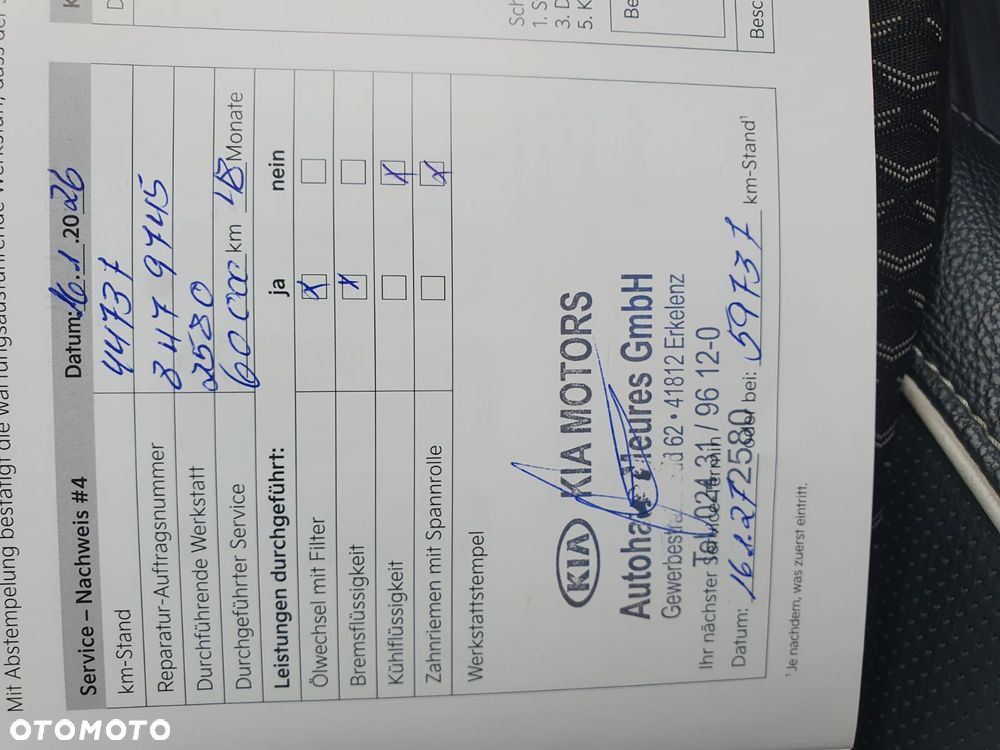 Mit Abstempelung bestätigt die wartungsausführende Werkstatt, dass der
Service – Nachweis #4 Datum: 16.1.2026
km-Stand 44737
Reparatur-Auftragsnummer 347 9745
Durchführende Werkstatt 2580
Durchgeführter Service 60 000 km 48 Monate
Leistungen durchgeführt: ja nein
Ölwechsel mit Filter x
Bremsflüssigkeit x
Kühlflüssigkeit x
Zahnriemen mit Spannrolle x
Werkstattstempel
KIA KIA MOTORS
Autohaus Heures GmbH
62 • 41812 Erkelenz
Tel. 02431 / 96 12-0
Ihr nächster Servicetermin
2580
Datum: 16.1.27 oder bei: 59737 km-Stand¹
¹Je nachdem, was zuerst eintritt.
Sch
1. S
3. D
5. K
Be
Besc
K
D
OTOMOTO